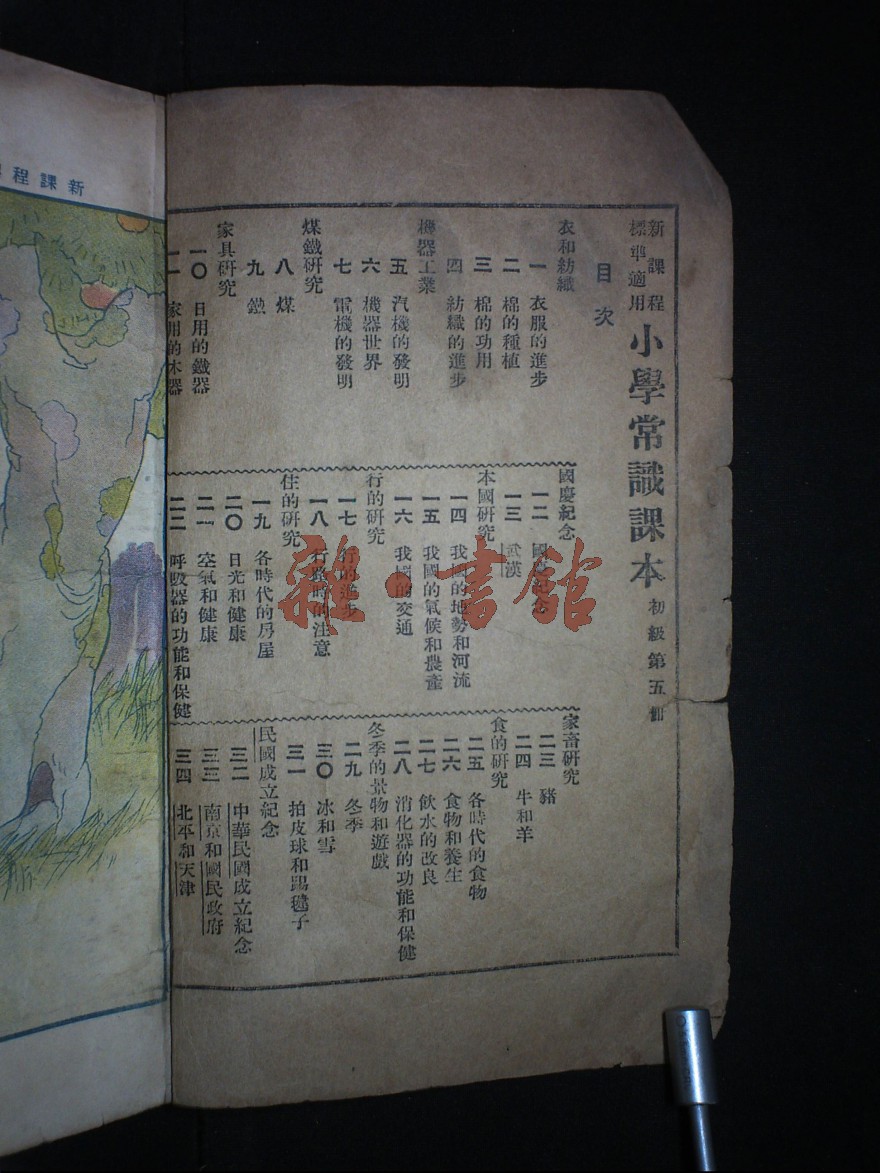 新課程標準適用
小學常識課本
初級第五冊
目次
衣和紡織
一 衣服的進步
二 棉的種植
三 棉的功用
四 紡織的進步
機器工業
五 汽機的發明
六 機器世界
七 電機的發明
煤鐵研究
八 煤
九 鐵
家具研究
一〇 日用的鐵器
一一 家用的木器
國慶紀念
一二 國慶紀念
一三 武漢
本國研究
一四 我國的地勢和河流
一五 我國的氣候和農產
一六 我國的交通
行的研究
一七 行的進步
一八 行路時的注意
住的研究
一九 各時代的房屋
二〇 日光和健康
二一 空氣和健康
二二 呼吸器的功能和保健
家畜研究
二三 豬
二四 牛和羊
食的研究
二五 各時代的食物
二六 食物和養生
二七 飲水的改良
二八 消化器的功能和保健
冬季的景物和遊戲
二九 冬季
三〇 冰和雪
三一 拍皮球和踢毽子
民國成立紀念
三二 中華民國成立紀念
三三 南京和國民政府
三四 北平和天津
新課程
雜·書館